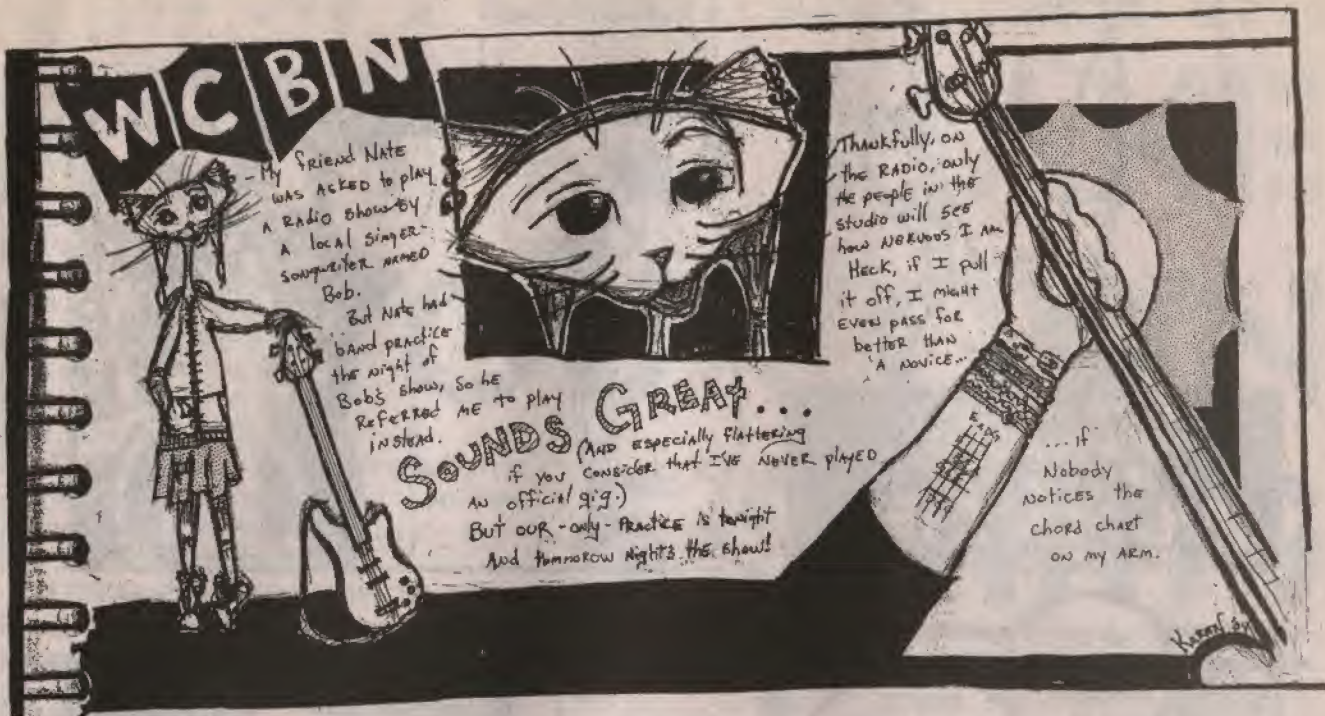 WCBN
- My friend Nate
was asked to play
a radio show by
a local singer-
songwriter named
Bob.
But Nate had
band practice
the night of
Bob's show, so he
referred me to play
instead.
SOUNDS GREAT...
(And especially flattering
if you consider that I've never played
an official gig.)
But our - only - practice is tonight
And tummorow night's the show!
Thankfully, on
the radio, only
the people in the
studio will see
how nervous I am.
Heck, if I pull
it off, I might
even pass for
better than
a novice...
E A D G
...if
nobody
notices the
chord chart
on my arm.